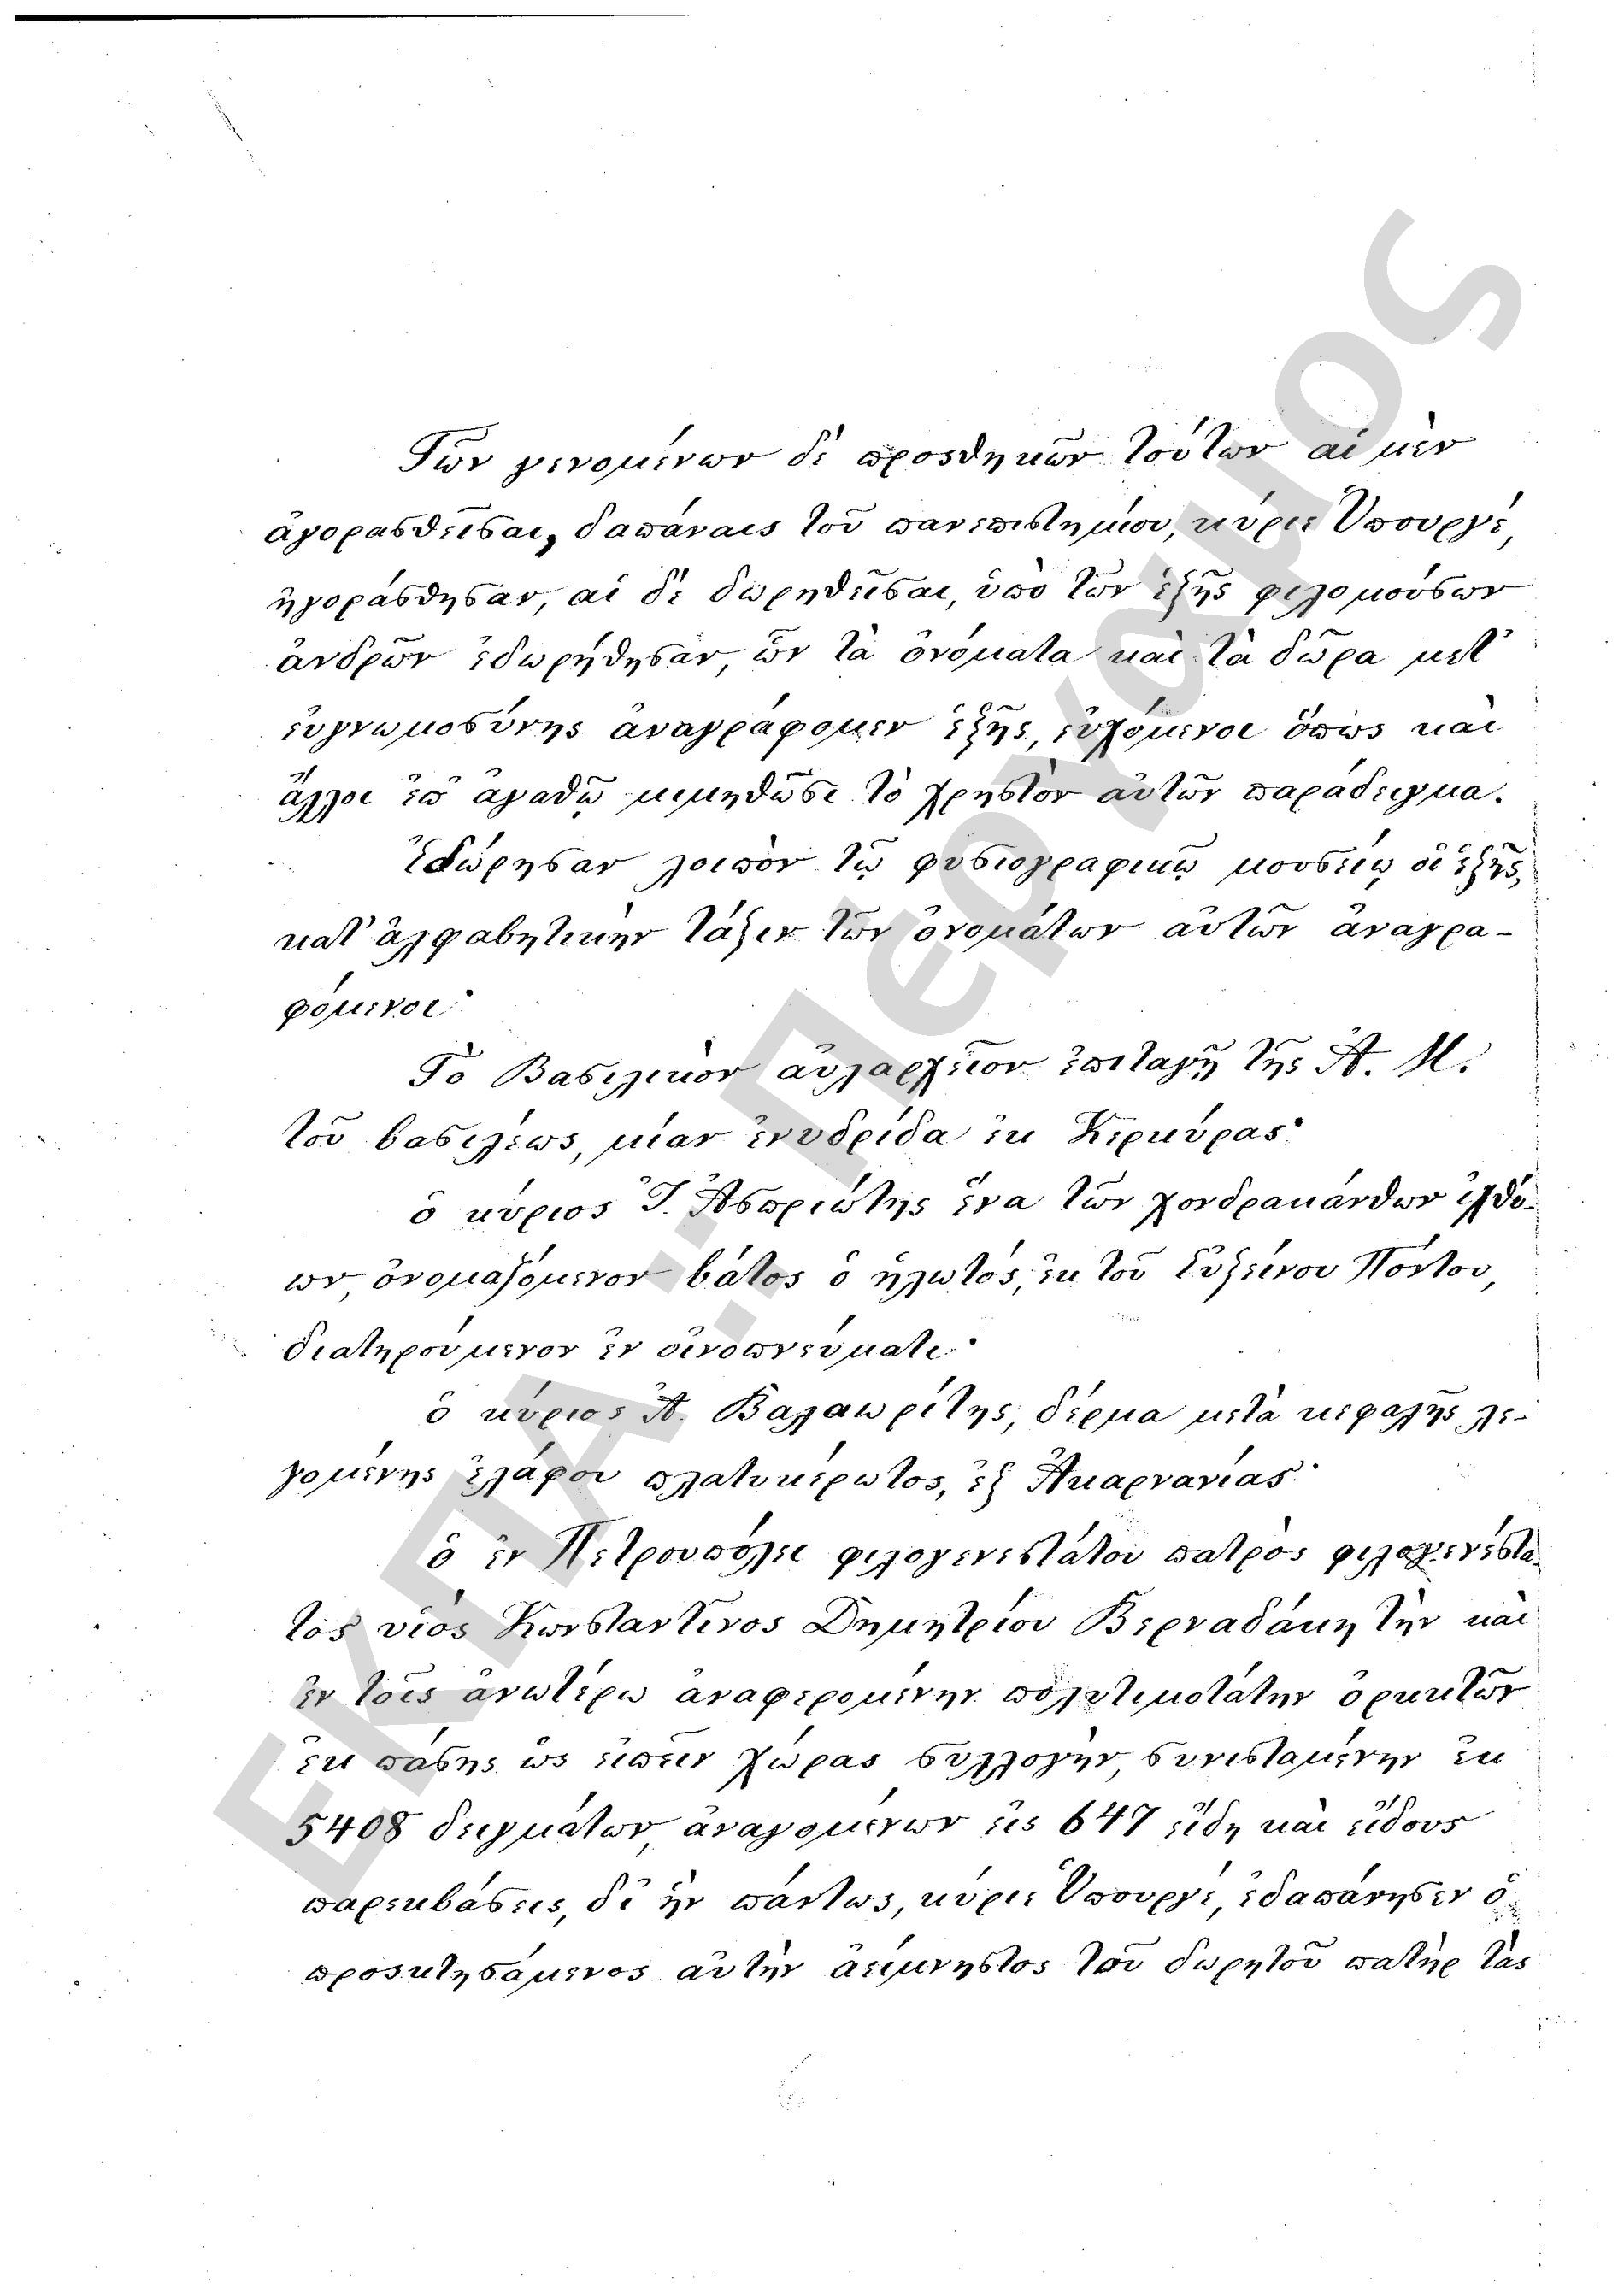 Τῶν γενομένων δὲ προσθηκῶν τούτων αἱ μὲν
ἀγορασθεῖσαι, δαπάναις τοῦ πανεπιστημίου, κύριε Ὑπουργέ,
ἠγοράσθησαν, αἱ δὲ δωρηθεῖσαι, ὑπὸ τῶν ἑξῆς φιλομούσων
ἀνδρῶν ἐδωρήθησαν, ὧν τὰ ὀνόματα καὶ τὰ δῶρα μετ'
εὐγνωμοσύνης ἀναγράφομεν ἑξῆς, εὐχόμενοι ὅπως καὶ
ἄλλοι ἐπ' ἀγαθῷ μιμηθῶσι τὸ χρηστὸν αὐτῶν παράδειγμα.
Ἐδώρησαν λοιπὸν τῷ φυσιογραφικῷ μουσείῳ οἱ ἑξῆς,
κατ' ἀλφαβητικὴν τάξιν τῶν ὀνομάτων αὐτῶν ἀναγρα-
φόμενοι·
Τὸ Βασιλικὸν αὐλαρχεῖον ἐπιταγῇ τῆς Α. Μ.
τοῦ βασιλέως, μίαν ἐνυδρίδα ἐκ Κερκύρας·
ὁ κύριος Ἰ. Ἀσπριώτης ἕνα τῶν χονδρακάνθων ἰχθύ-
ων, ὀνομαζόμενον βάτος ὁ ἡλωτός, ἐκ τοῦ Εὐξείνου Πόντου,
διατηρούμενον ἐν οἰνοπνεύματι·
ὁ κύριος Ἀ. Βαλαωρίτης, δέρμα μετὰ κεφαλῆς λε-
γομένης ἐλάφου πλατυκέρωτος, ἐξ Ἀκαρνανίας·
ὁ ἐν Πετρουπόλει φιλογενεστάτου πατρὸς φιλογενέστα-
τος υἱὸς Κωνσταντῖνος Δημητρίου Βερναδάκη τὴν καὶ
ἐν τοῖς ἀνωτέρω ἀναφερομένην πολυτιμοτάτην ὀρυκτῶν
ἐκ πάσης ὡς εἰπεῖν χώρας συλλογὴν, συνισταμένην ἐκ
5408 δειγμάτων, ἀναγομένων εἰς 647 εἴδη καὶ εἴδους
παρεκβάσεις, δι' ἣν πάντως, κύριε Ὑπουργέ, ἐδαπάνησεν ὁ
προσκτησάμενος αὐτὴν ἀείμνηστος τοῦ δωρητοῦ πατὴρ τὰς
ΕΚΠΑ.:Πέργαμος